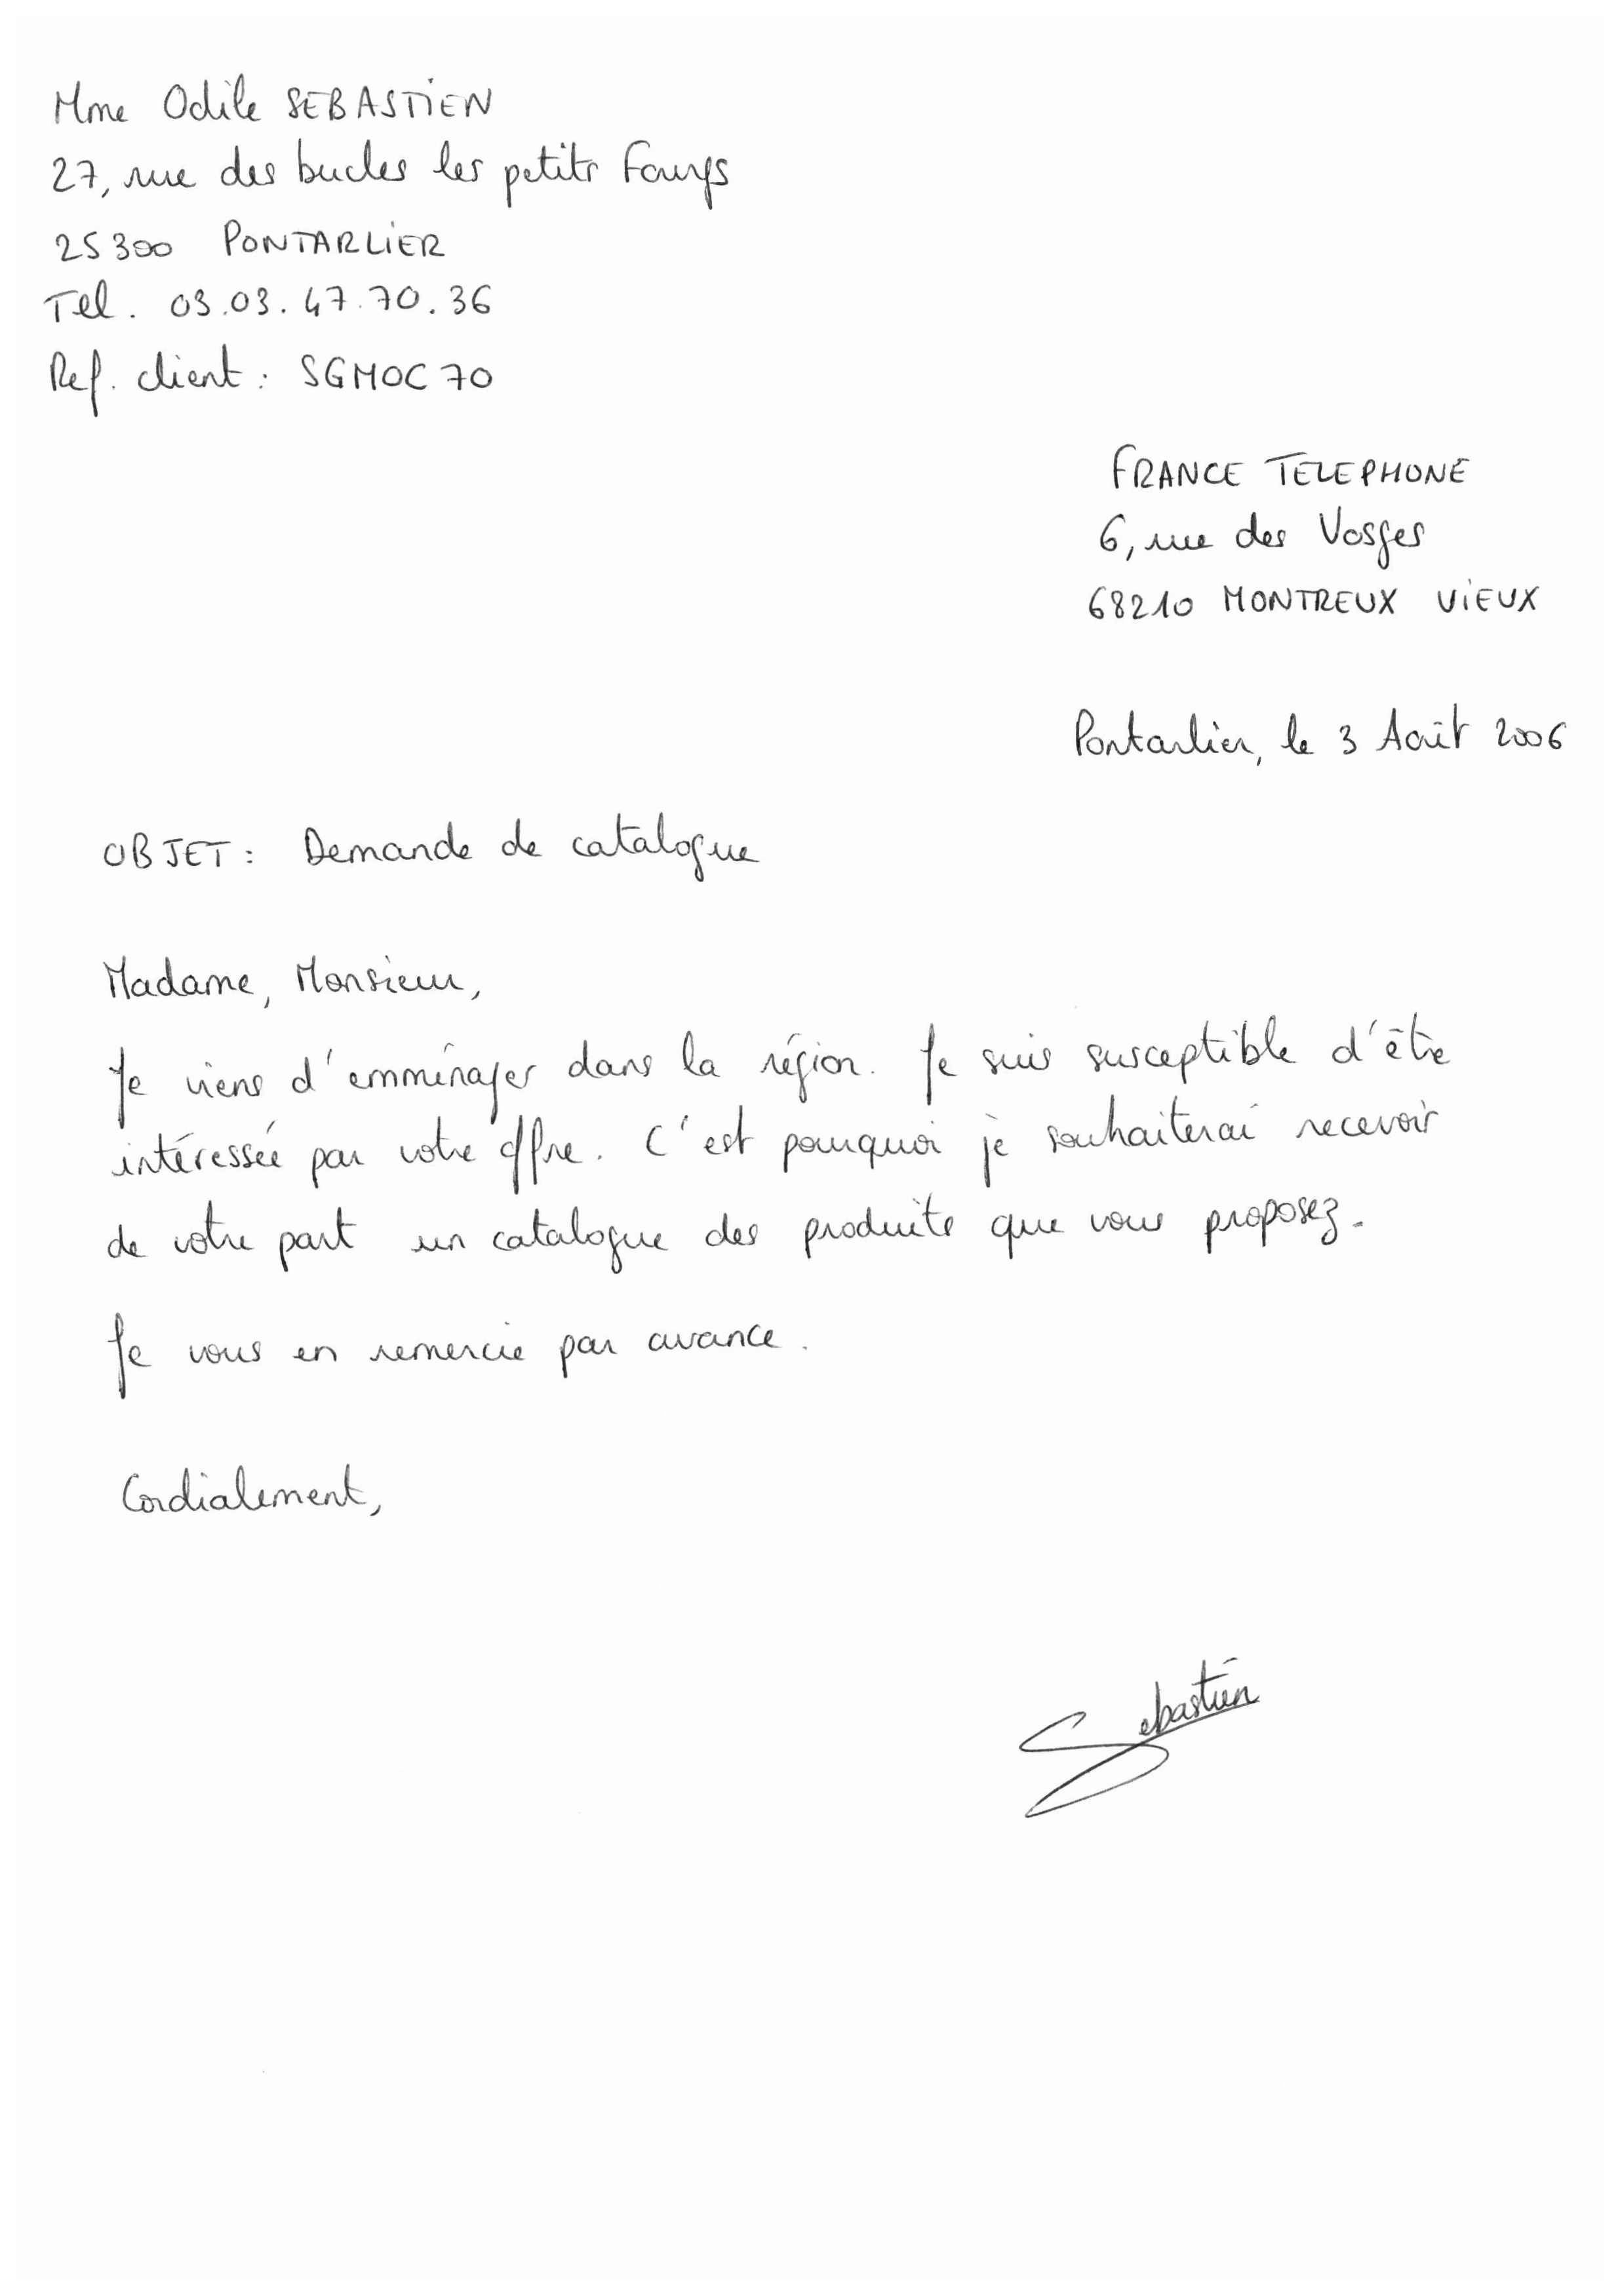 Mme Odile SEBASTIEN
27, rue des bucles les petits Fourgs
25300 PONTARLIER
Tel. 03.03.47.70.36
Ref. client : SGMOC70
FRANCE TELEPHONE
6, rue des Vosges
68210 MONTREUX VIEUX
Pontarlier, le 3 Août 2006
OBJET : Demande de catalogue
Madame, Monsieur,
Je viens d'emménager dans la région. Je suis susceptible d'être
intéressée par votre offre. C'est pourquoi je souhaiterai recevoir
de votre part un catalogue des produits que vous proposez.
Je vous en remercie par avance.
Cordialement,
Sebastien